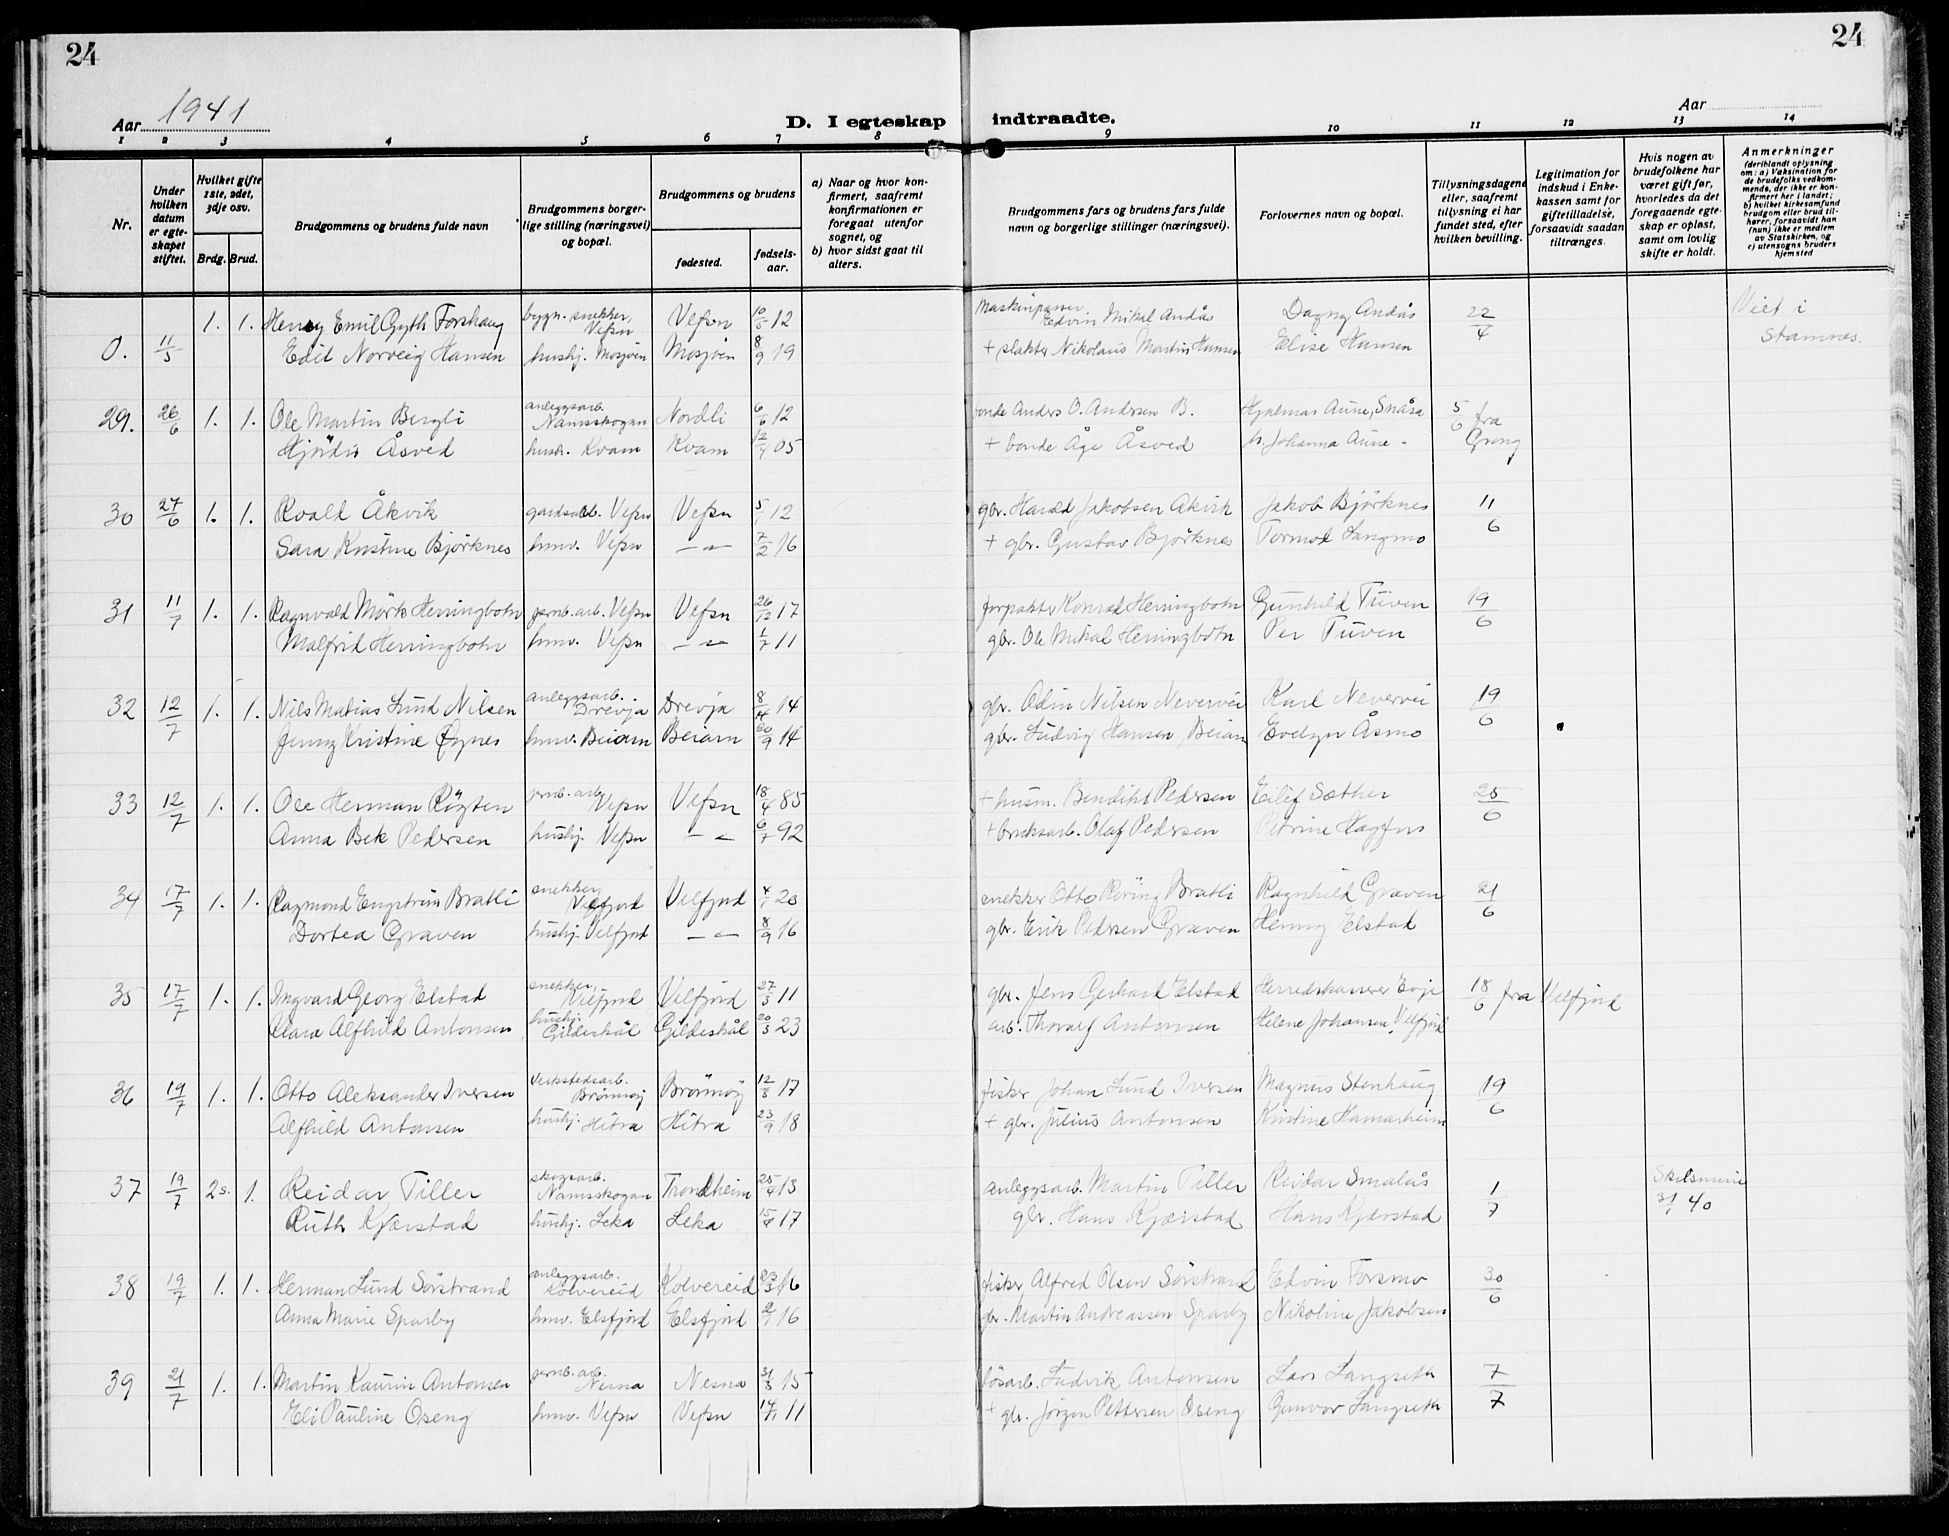 24
24
Aar 1941
D. I egteskap indtraadte.
Aar
1 2 3 4 5 6 7 8 9 10 11 12 13 14
Nr.
Under hvilken datum er egteskapet stiftet.
Hvilket gifte 1ste, 2det, 3dje osv.
Brdg. Brud.
Brudgommens og brudens fulde navn
Brudgommens borgerlige stilling (næringsvei) og bopæl.
Brudgommens og brudens
fødested. fødselsaar.
a) Naar og hvor konfirmert, saafremt konfirmationen er foregaat utenfor sognet, og
b) hvor sidst gaat til alters.
Brudgommens fars og brudens fars fulde navn og borgerlige stillinger (næringsvei).
Forlovernes navn og bopæl.
Tillysningsdagene eller, saafremt tillysning ei har fundet sted, efter hvilken bevilling.
Legitimation for indskud i Enkekassen samt for giftetilladelse, forsaavidt saadan tiltrænges.
Hvis nogen av brudefolkene har været gift før, hvorledes da det foregaaende egteskap er opløst, samt om lovlig skifte er holdt.
Anmerkninger (deriblandt oplysning om: a) Vaksination for de brudefolks vedkommende, der ikke er konfirmert her i landet; b) hvilket kirkesamfund brudgom eller brud tilhører, forsaavidt han (hun) ikke er medlem av Statskirken, og c) utensogns bruders hjemsted
O. 11/5 1. 1. Henry Emil Gyth Forshaug bygn. snekker, Vefsn Vefsn 10/5 12 Edvin Mikal Andås Dagny Andås 22/4 Viet i
Edit Norveig Hansen hushj. Mosjøen Mosjøen 8/9 19 + slakter Nikolaus Martin Hansen Elise Hansen Stamnes.
29. 26/6 1. 1. Ole Martin Bergli anleggsarb. Namsskogan Nordli 6/6 12 bonde Anders O. Andersen B. Hjalmar Aune, Snåsa 5/6 fra
Hjördis Åsved hush. Kvam Kvam 12/4 05 + bonde Åge Åsved Johanna Aune - Grong
30 27/6 1. 1. Roald Åkvik gardsarb. Vefsn Vefsn 5/1 12 gbr. Harald Jakobsen Åkvik Jakob Bjørknes 11/6
Sara Kristine Bjørknes hmv. Vefsn — " — 7/2 16 + gbr. Gustav Bjørknes Tormod Langmo
31 11/7 1. 1. Ragnvald Mörk Herringbotn jernb.arb. Vefsn Vefsn 26/12 17 forpakter Konrad Herringbotn Gunhild Tuven 19/6
Malfrid Herringbotn hmv. Vefsn — " — 1/7 11 gbr. Ole Mikal Herringbotn Per Tuven
32 12/7 1. 1. Nils Matias Lund Nilsen anleggsarb. Drevja Drevja 8/11 14 gbr. Odin Nilsen Nevervei Karl Nevervei 19/6
Jenny Kristine Øynes hmv. Beiarn Beiarn 30/9 14 gbr. Ludvig Hansen, Beiarn Evelyn Åsmo
33 12/7 1. 1. Ole Herman Röyten jernb.arb. Vefsn Vefsn 18/4 85 + husm. Bendikt Pedersen Eilif Sæther 25/6
Anna Bek Pedersen hushj. Vefsn — " — 6/7 92 + bruksarb. Olaf Pedersen Petrine Hagfors
34 17/7 1. 1. Ragmond Engström Bratli snekker, Velfjord Velfjord 4/1 20 snekker Otto Röring Bratli Ragnhild Græven 21/6
Dortea Græven hushj. Velfjord — " — 8/9 16 gbr. Erik Pedersen Græven Henny Elstad
35 17/7 1. 1. Ingvard Georg Elstad snekker, Velfjord Velfjord 27/3 11 gbr. Jens Gerhard Elstad Herredskasserer Evje 18/6 fra Velfjord
Clara Alfhild Antonsen hushj. Gildeskål Gildeskål 20/3 23 arb. Thoralf Antonsen Helene Johansen, Velfjord
36 19/7 1. 1. Otto Aleksander Iversen Verkstedsarb. Brönnöy Brönnöy 12/3 17 fisker Johan Lund Iversen Magnus Stenhaug 19/6
Alfhild Antonsen hushj. Hitra Hitra 23/9 18 + gbr. Julius Antonsen Kristine Hamarheim
37 19/7 2s. 1. Reidar Tiller skogsarb. Namsskogan Trondheim 25/9 13 anleggsarb. Martin Tiller Reidar Smalås 1/7
Ruth Kjærstad hushj. Leka Leka 15/4 17 gbr. Hans Kjærstad Hans Kjærstad 31/1 40
38 19/7 1. 1. Herman Lund Sörstrand anleggsarb. Kolvereid Kolvereid 23/3 16 fisker Alfred Olsen Sörstrand Edvin Forsmo 30/6
Anna Marie Sparby hmv. Elsfjord Elsfjord 2/1 16 gbr. Martin Andreassen Sparby Nikoline Jakobsen
39 21/7 1. 1. Martin Kaurin Antonsen jernb.arb. Nesna Nesna 31/3 15 lösarb. Ludvik Antonsen Lars Langseth 7/7
Eli Pauline Oseng hmv. Vefsn Vefsn 14/7 11 + gbr. Jörgen Pettersen Oseng Gunvor Langseth